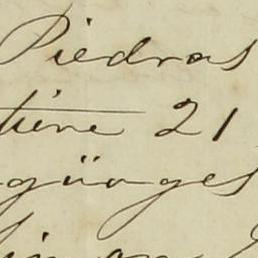 Piedras
tiene 21
güages